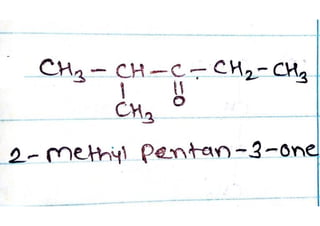 CH3 – CH – C – CH2 – CH3
| ||
CH3 O
2-methyl pentan-3-one